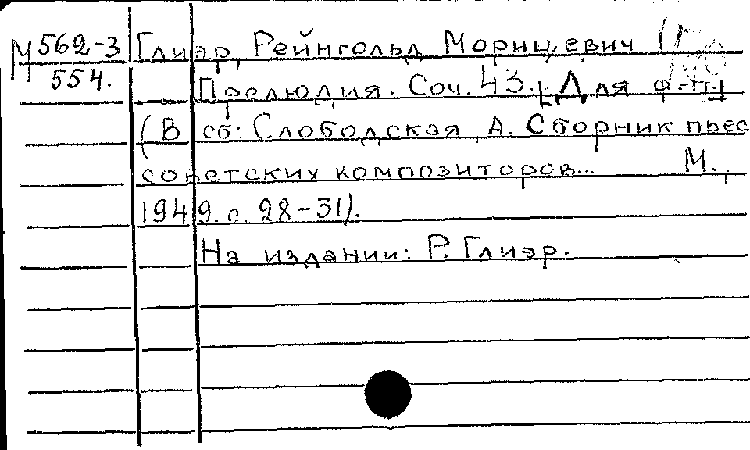 М 562-3 Глиэр, Рейнгольд Морицевич
554. Прелюдия. Соч. 43. [Для ф-п.]
(В сб: Слободская А. Сборник пьес
советских композиторов... М.,
1949. с. 28-31).
На издании: Р. Глиэр.